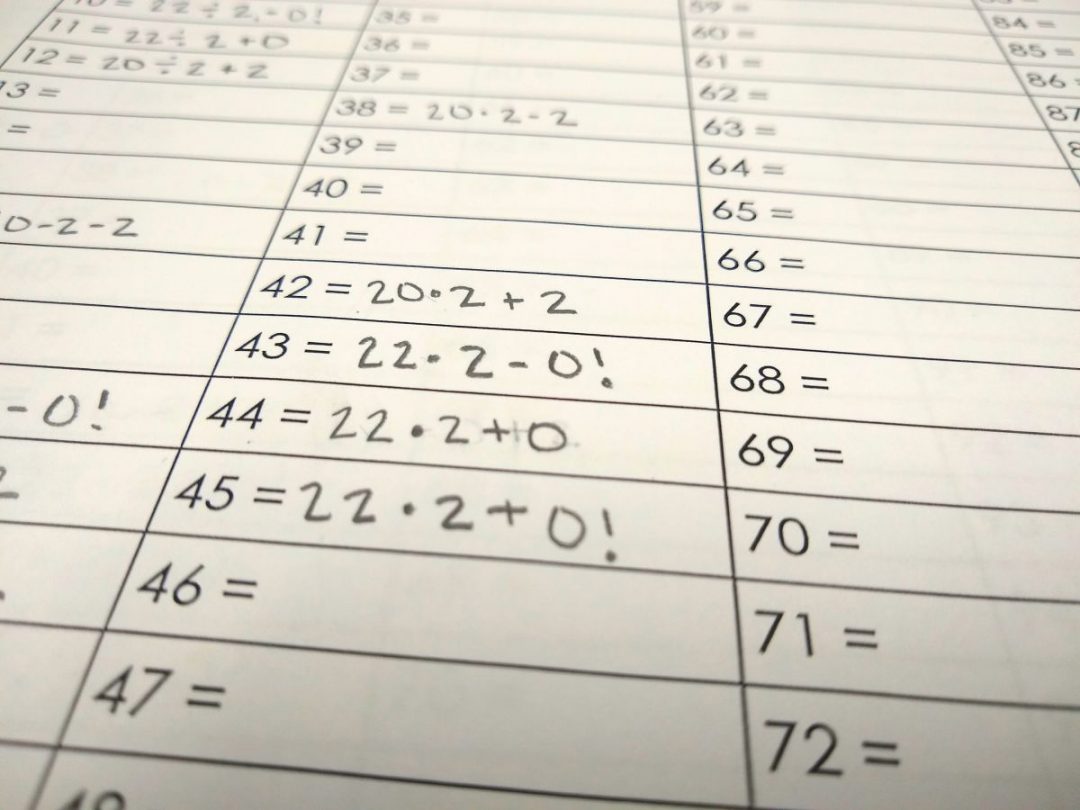 10 = 22 ÷ 2 - 0!
11 = 22 ÷ 2 + 0
12 = 20 ÷ 2 + 2
13 =
=
0-2-2
- 0!
35 =
36 =
37 =
38 = 20·2-2
39 =
40 =
41 =
42 = 20·2 + 2
43 = 22·2 - 0!
44 = 22·2+0
45 = 22·2+0!
46 =
47 =
59 =
60 =
61 =
62 =
63 =
64 =
65 =
66 =
67 =
68 =
69 =
70 =
71 =
72 =
84 =
85 =
86
87